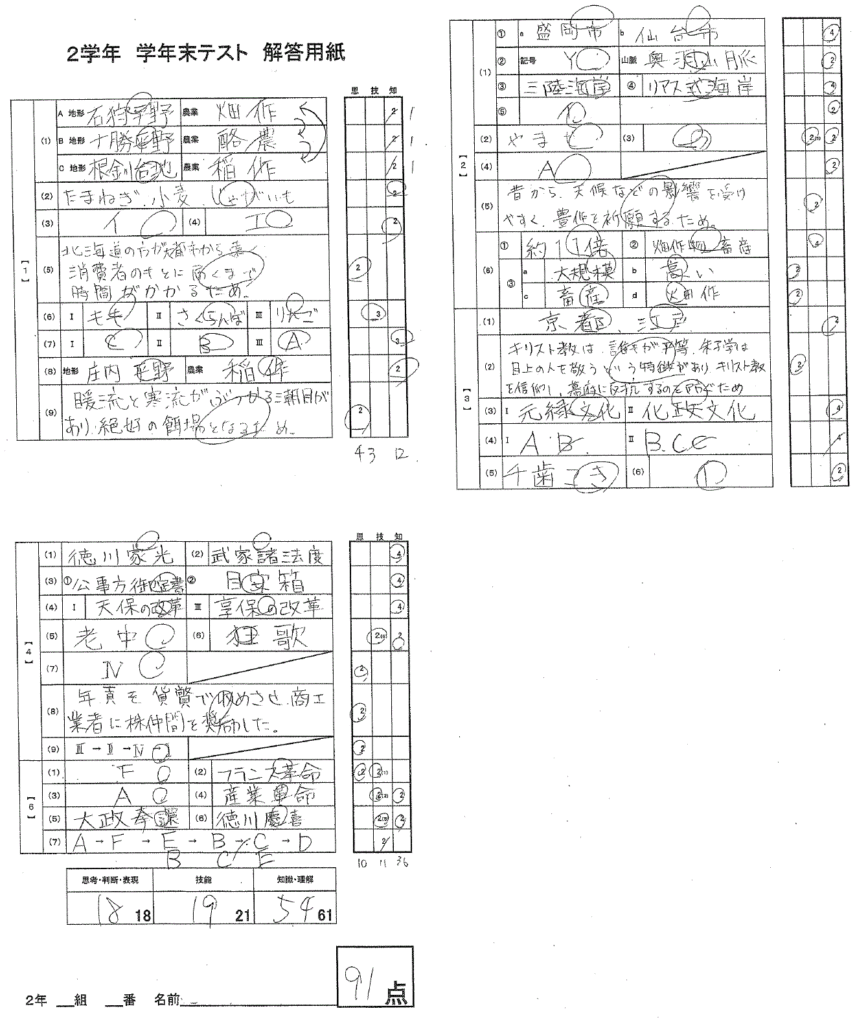 2学年 学年末テスト 解答用紙
思 技 知
【1】
(1) A 地形 石狩平野 農業 畑作 2 1
B 地形 十勝平野 農業 酪農 2 1
C 地形 根釧台地 農業 稲作 2 1
(2) たまねぎ、小麦、じゃがいも 2
(3) イ (4) エ 2
(5) 北海道の方が
消費者のもとに届くまで
時間がかかるため。 2
(6) Ⅰ もも Ⅱ さくらんぼ Ⅲ りんご 3
(7) Ⅰ C Ⅱ B Ⅲ A 3
(8) 地形 庄内平野 農業 稲作 2
(9) 暖流と寒流がぶつかる潮目が
あり、絶好の餌場となるため。 2
4 3 12
【2】
(1) ① a 盛岡市 b 仙台市 4
② 記号 Y 山脈 奥羽山脈 2
③ 三陸海岸 ④ リアス式海岸 4
⑤ 2
(2) やませ (3) 2 2
(4) A 2
(5) 昔から、天候などの影響を受け
やすく、豊作を祈願するため。 2
(6) ① 約11倍 ② 畑作物 畜産 4
③ a 大規模 b 高い 2
c 畜産 d 畑作 2
【3】
(1) 京都、江戸 2
(2) キリスト教は、誰もが平等、朱子学は
目上の人を敬うという特徴がありキリスト教
を信仰し、幕府に反抗するのを防ぐため 2
(3) Ⅰ 元緑文化 Ⅱ 化政文化 4
(4) Ⅰ A.B. Ⅱ B.C.E 4
(5) 千歯こき (6) 2
思 技 知
【4】
(1) 徳川家光 (2) 武家諸法度 4
(3) ① 公事方御定書 ② 目安箱 4
(4) Ⅰ 天保の改革 Ⅲ 享保の改革 4
(5) 老中 (6) 狂歌 2 2
(7) N 2
(8) 年貢を貨幣で収めさせ、商工
業者に株仲間を奨励した。 2
(9) Ⅲ→Ⅱ→Ⅳ→Ⅰ 2
【6】
(1) F (2) フランス革命 2 2
(3) A (4) 産業革命 2 2
(5) 大政奉還 (6) 徳川慶喜 2 2
(7) A→F→E→B→C→D 2
B C E
10 11 36
思考・判断・表現 技能 知識・理解
18 18 19 21 54 61
91 点
2年 __組 __番 名前